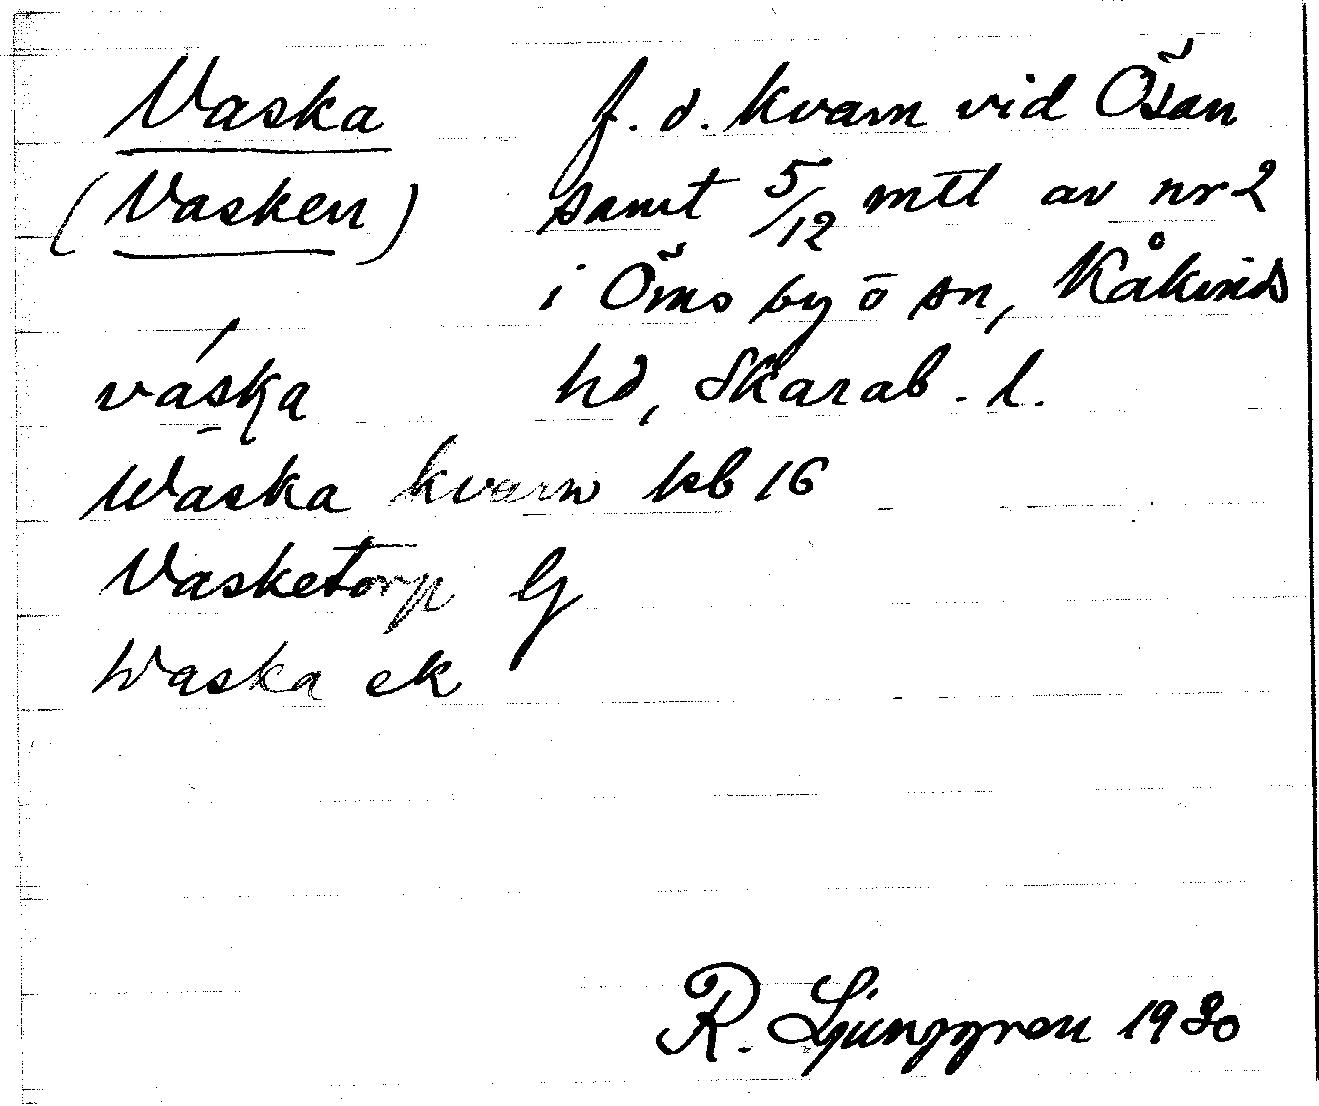 Vaska f. d. kvarn vid Ösan
(Vasken) samt 5/12 mtl av nr 2
i Öms by ö sn, Kåkinds
váska hd, Skarab. l.
Waska kvarn hsb 16
Vasketorp G
Waska ek
R. Ljunggren 1930